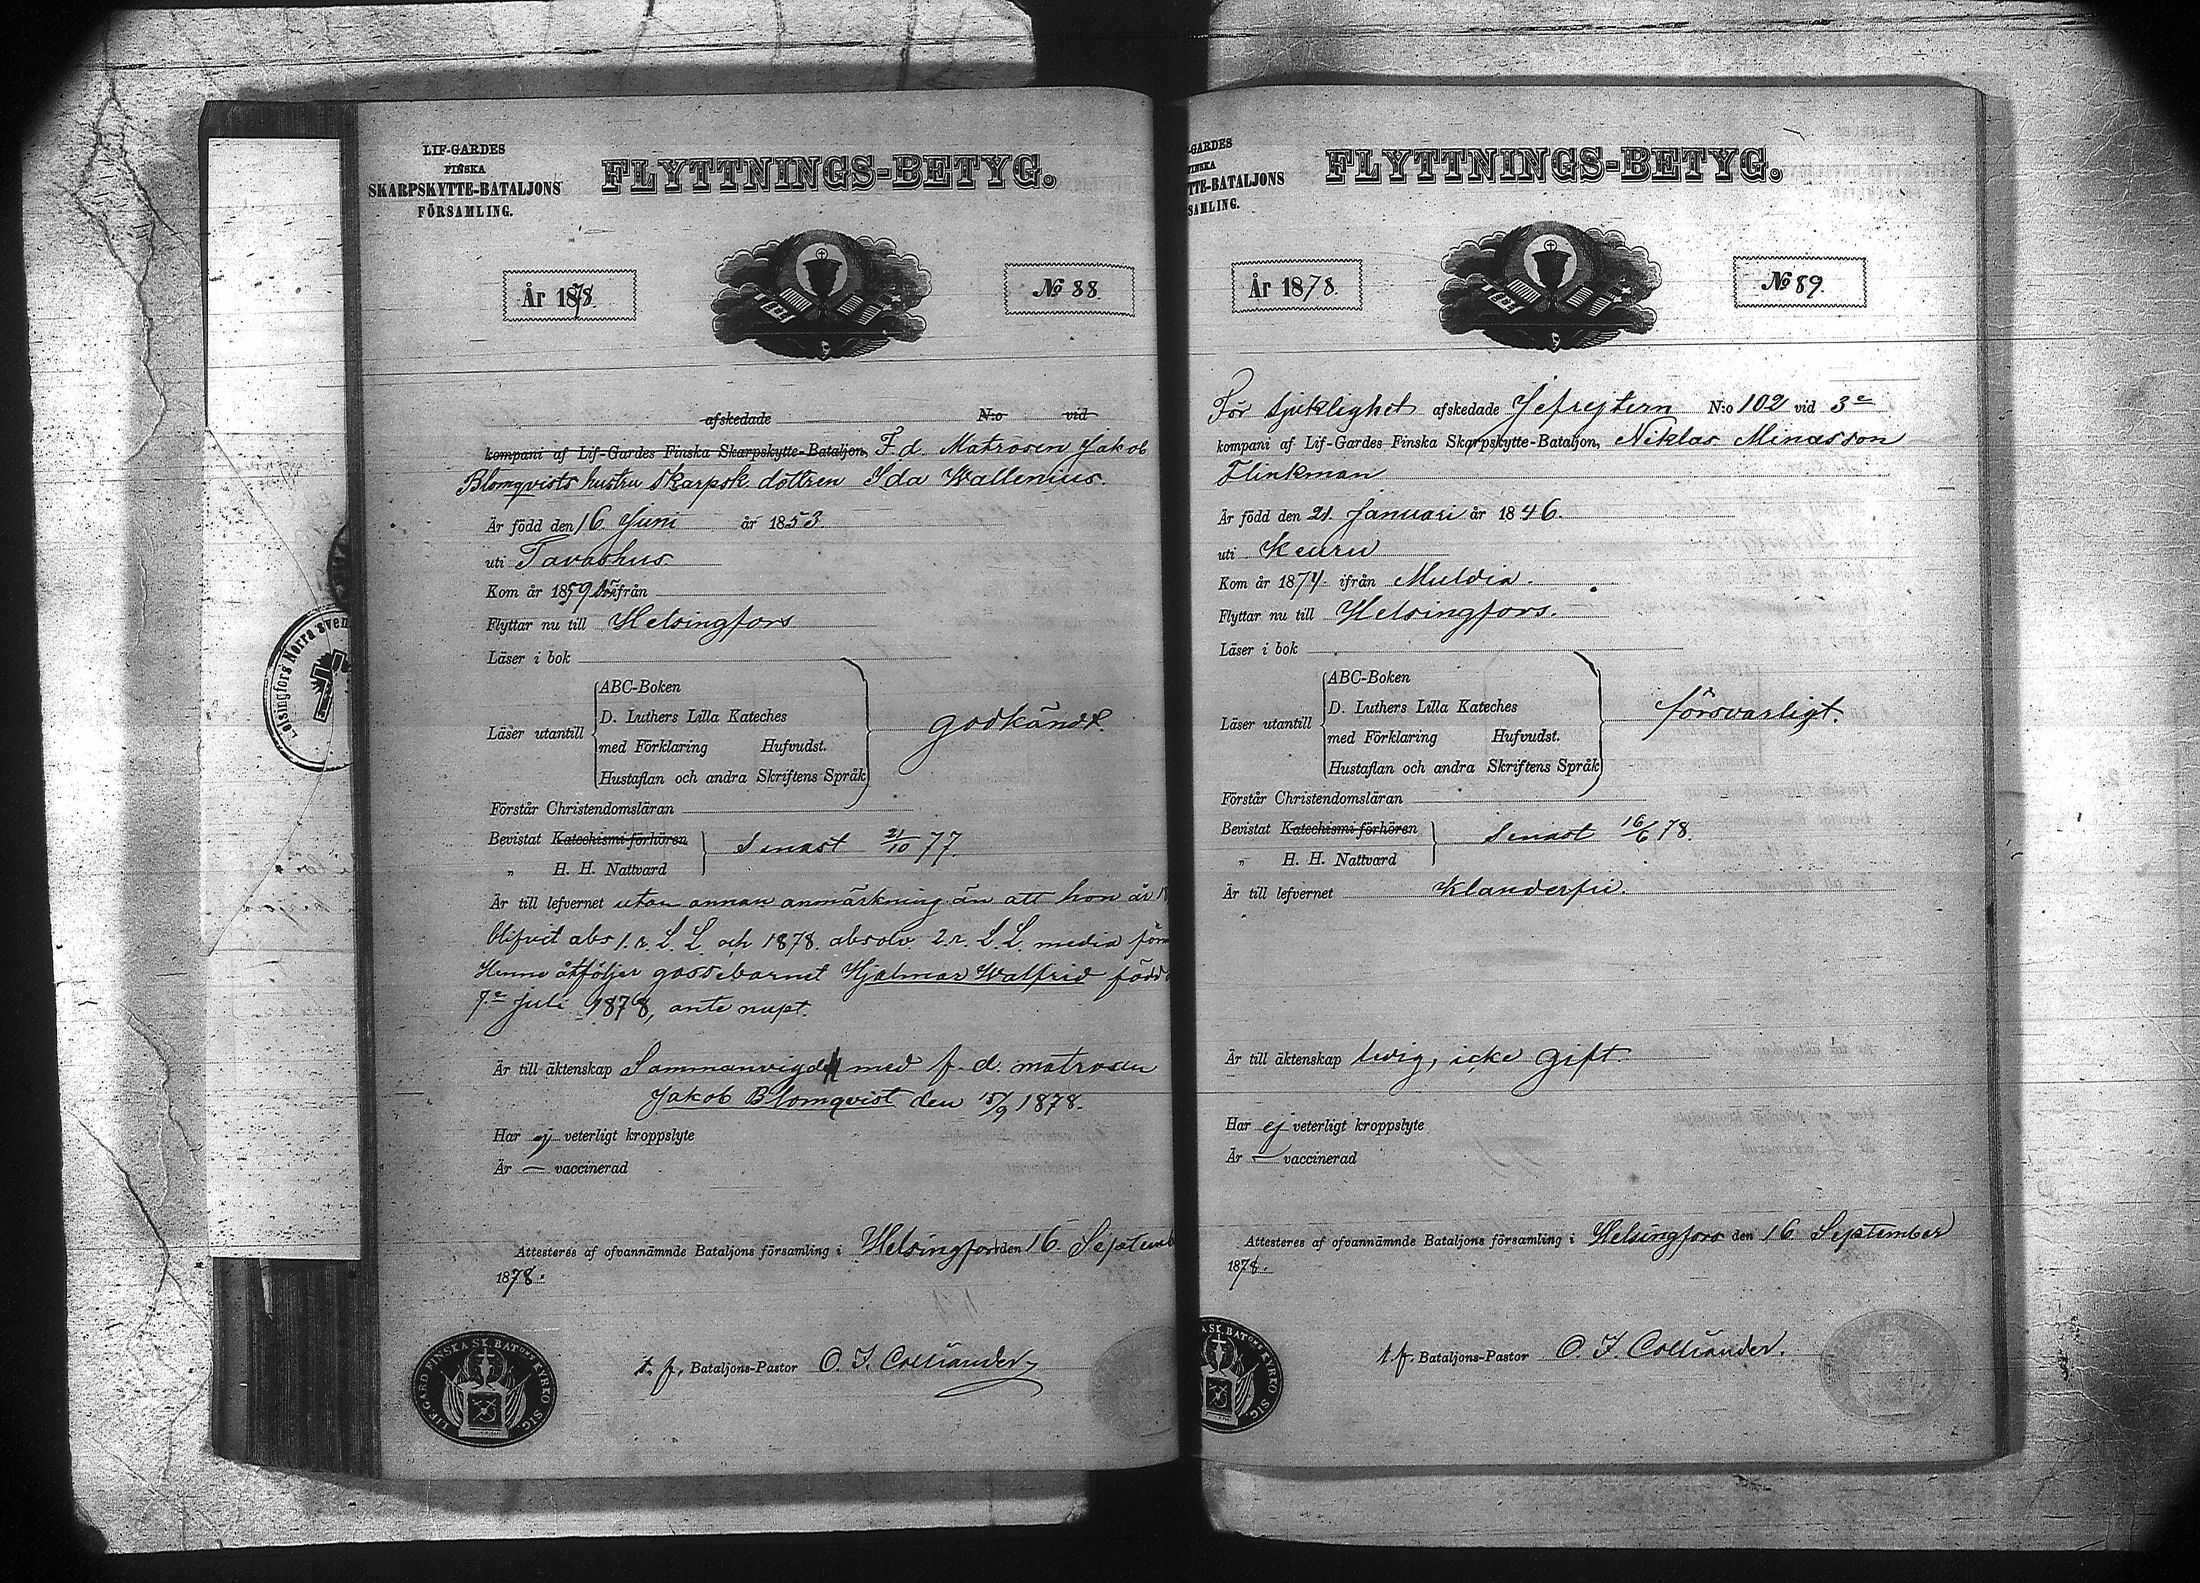 LIF-GARDES
FINSKA
SKARPSKYTTE-BATALJONS
FÖRSAMLING.
FLYTTNINGS-BETYG.
År 1878.
№ 88
afskedade N:o vid
kompani af Lif-Gardes Finska Skarpskytte-Bataljon, F. d. Matrosen Jakob
Blomqvists hustru Skarpsk. dottren Ida Wallenius.
Är född den 16 Juni år 1853.
uti Tavashus.
Kom år 1859 ifrån
Flyttar nu till Helsingfors
Läser i bok
Läser utantill
ABC-Boken
D. Luthers Lilla Kateches
med Förklaring Hufvudst.
Hustaflan och andra Skriftens Språk
godkändt.
Förstår Christendomsläran
Bevistat Katechismi-förhören
„ H. H. Nattvard
Senast 21/10 77.
Är till lefvernet utan annan anmärkning än att hon är
blifvit abs. 1. r. L. L. och 1878. absolv. 2. r. L. L. media
Henne åtföljer gossebarnet Hjalmar Walfrid född
7.e Juli 1878, ante nupt.
Är till äktenskap Sammanvigd med f. d. matrosen
Jakob Blomqvist den 15/9 1878.
Har ej veterligt kroppslyte
Är — vaccinerad
Attesteras af ofvannämnde Bataljons församling i Helsingfors den 16. Septemb
1878.
LIF-GARD. FINSKA SK. BAT:ONS KYRKO SIG.
t. f. Bataljons-Pastor O. F. Colliander
Helsingfors Norra sven
-GARDES
FINSKA
TTE-BATALJONS
SAMLING.
FLYTTNINGS-BETYG.
År 1878.
№ 89.
För sjuklighet afskedade Gefrejtern N:o 102 vid 3e
kompani af Lif-Gardes Finska Skarpskytte-Bataljon, Niklas Minasson
Flinkman
Är född den 21. Januari år 1846.
uti Keuru
Kom år 1874 ifrån Muldia.
Flyttar nu till Helsingfors.
Läser i bok
Läser utantill
ABC-Boken
D. Luthers Lilla Kateches
med Förklaring Hufvudst.
Hustaflan och andra Skriftens Språk
försvarligt.
Förstår Christendomsläran
Bevistat Katechismi-förhören
„ H. H. Nattvard
Senast 16/6 78.
Är till lefvernet Klanderfri.
Är till äktenskap ledig, icke gift.
Har ej veterligt kroppslyte
Är — vaccinerad
Attesteras af ofvannämnde Bataljons församling i Helsingfors den 16. September
1878.
A SK. BAT:ONS KYRKO SIG.
t. f. Bataljons-Pastor O. F. Colliander.